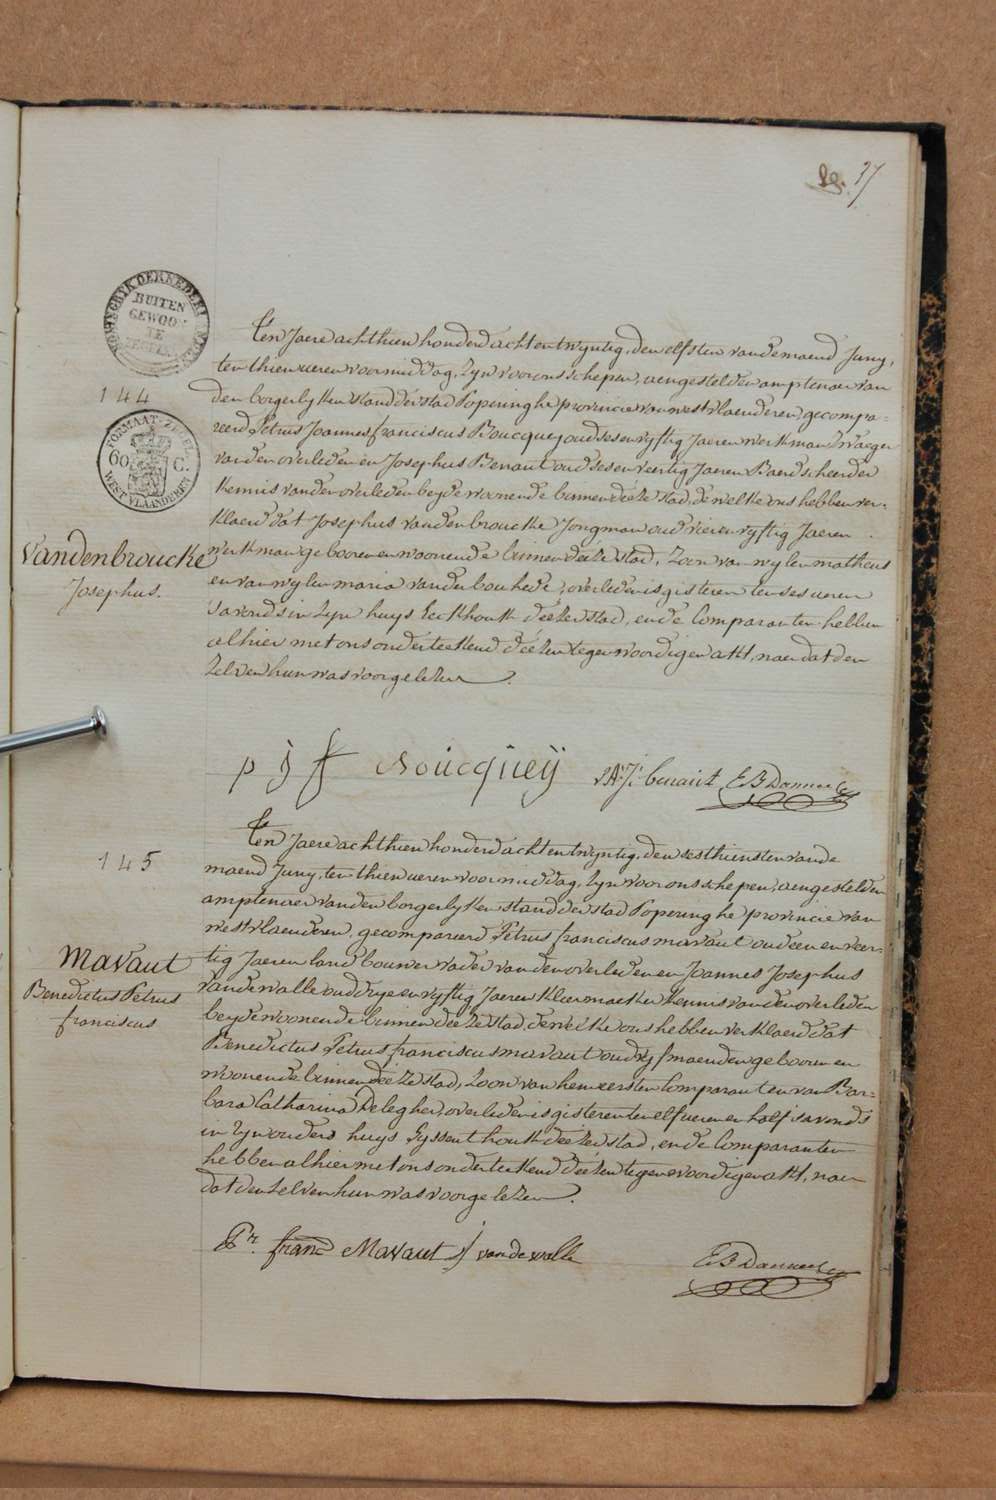 Lg. 37
KONINGRYK DER NEDERLANDEN
BUITEN
GEWOON
TE
ZEGELEN
144
FORMAAT-ZEGEL
60 C.
WEST VLAANDEREN
Vandenbroucke
Josephus.
Ten Jaere achthien honderd acht en twyntig, den elfsten van de maend Juny,
ten thien ueren voormiddag, zyn voor ons schepen, aengestelden amptenaer van
den borgerlyken stand der stad Poperinghe provincie van westvlaenderen, gecompa-
reerd Petrus Joannes franciscus Boucquey oud sesenvyftig Jaeren werkman Zwaeger
van den overleden en Josephus Benaut oud sesenveertig Jaeren Baerdscheerder
Kennis van den overleden beyde woonende binnen deéze stad, de welke ons hebben ver-
Klaerd dat Josephus vandenbroucke Jongman oud vierenvyftig Jaeren
werkman gebooren en woonende binnen deéze stad, Zoon van wylen matheus
en van wylen maria vanden bouhede, overleden is gisteren ten ses ueren
savonds in zyn huys Eeckhoutk deézer stad, en de Comparanten hebben
alhier met ons onderteekend deézen tegenwoordigen akt, naer dat den
zelven hun was voorgelezen.
p j f Boucqueÿ J: benaut E B Danneel
145
Mavaut
Benedictus Petrus
franciscus
Ten Jaere achthien honderd acht en twyntig, den sesthiensten van de
maend Juny, ten thien ueren voormiddag, zyn voor ons schepen, aengestelden
amptenaer van den borgerlyken stand der stad Poperinghe provincie van
westvlaenderen, gecompareerd Petrus franciscus mavaut oud een en veer-
tig Jaeren landbouwer vader van den overleden en Joannes Josephus
vandewalle oud dryenvyftig Jaeren Kleermaeker Kennis van den overleden
beyde woonende binnen deéze stad, de welke ons hebben verklaerd dat
Benedictus Petrus franciscus mavaut oud vyf maenden gebooren en
woonende binnen deéze stad, Zoon van hem eersten Comparant en van Bar-
bara Catharina Delegher, overleden is gisteren ten elf ueren en half savonds
in zyn ouders huys Eyssenthoutk deézer stad, en de Comparanten
hebben alhier met ons onderteekend deézen tegenwoordigen akt, naer
dat den zelven hun was voorgelezen.
Pr. franc Mavaut J vandewalle
E B Danneel